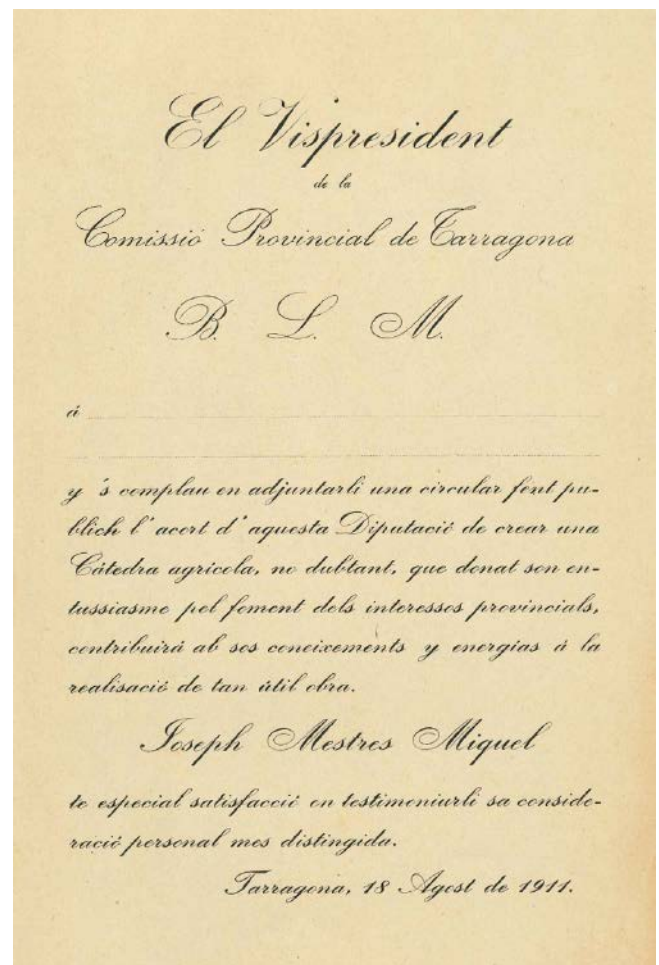 El Vispresident
de la
Comissió Provincial de Tarragona
B. L. M.
á
y 's complau en adjuntarli una circular fent pu-
blich l' acert d' aquesta Diputació de crear una
Cátedra agrícola, no dubtant, que donat son en-
tussiasme pel foment dels interessos provincials,
contribuirá ab ses coneixements y energías á la
realisació de tan útil obra.
Joseph Mestres Miquel
te especial satisfacció en testimoniarli sa conside-
ració personal mes distingida.
Tarragona, 18 Agost de 1911.